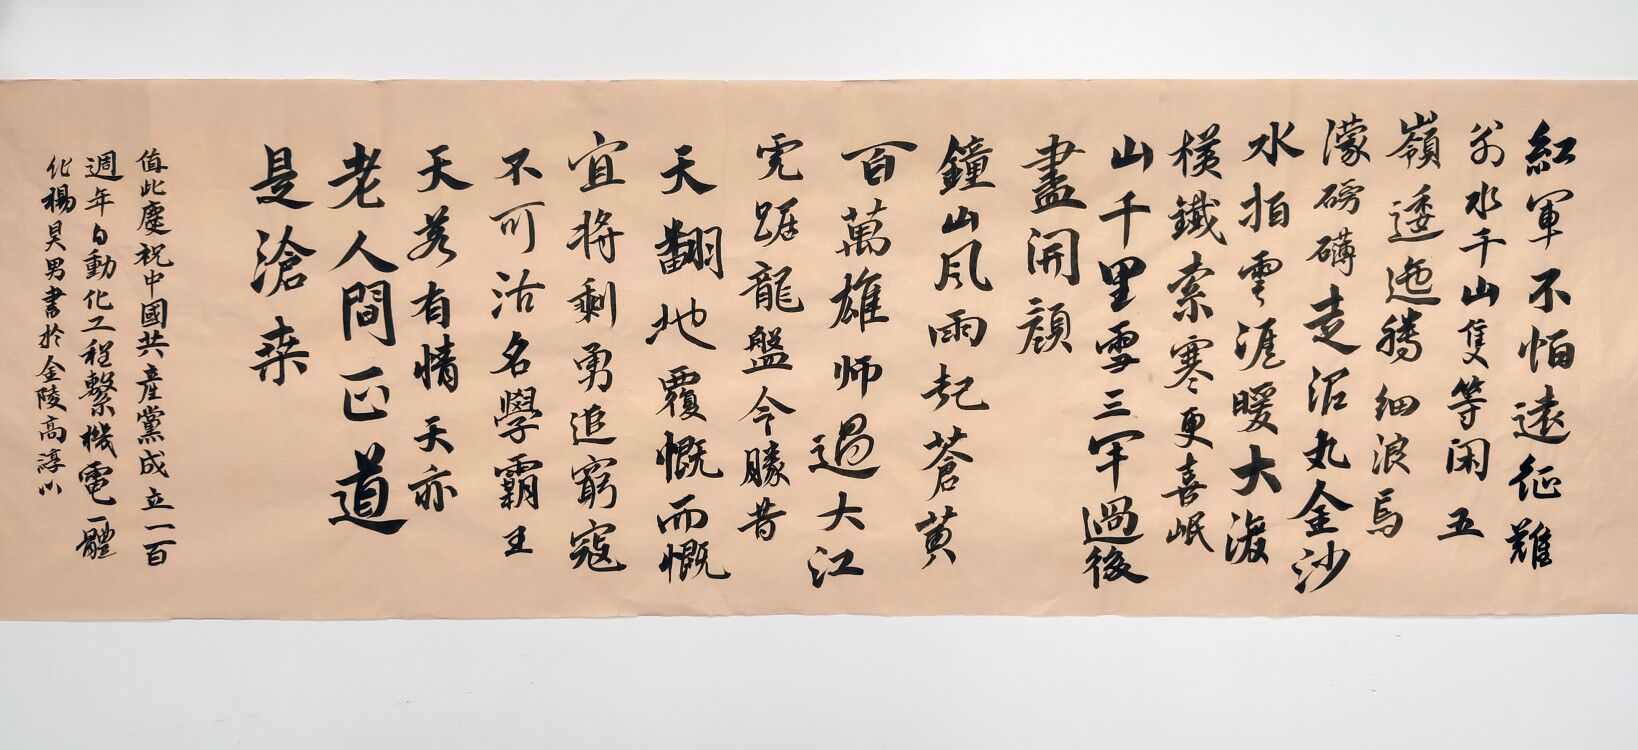 紅軍不怕遠征難
萬水千山隻等閑五
嶺逶迤騰細浪烏
濛磅礴走泥丸金沙
水拍雲涯暖大渡
橫鐵索寒更喜岷
山千里雪三軍過後
盡開顏
鐘山風雨起蒼黃
百萬雄師過大江
虎踞龍盤今勝昔
天翻地覆慨而慨
宜將剩勇追窮寇
不可沽名學霸王
天若有情天亦
老人間正道
是滄桑
值此慶祝中國共產黨成立一百
週年自動化工程繫機電一體
化楊昊男書於金陵高淳